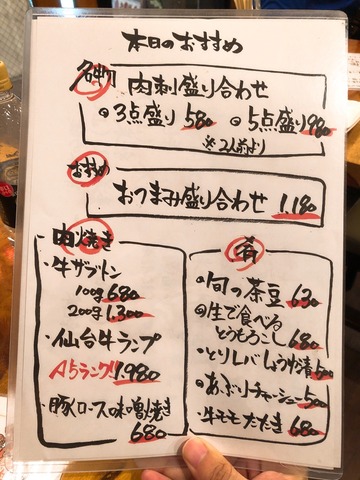 本日のおすすめ
名物 肉刺盛り合わせ
◎3点盛り 580 ◎5点盛り 980
※2人前より
おすすめ
おつまみ盛り合わせ 1,180
肉焼き
・牛ザブトン
100g 680
200g 1,300
・仙台牛ランプ
A5ランク!! 1,980
・豚ロース味噌焼き
680
肴
◎旬の茶豆 630
◎生で食べる
とうもろこし 680
・とりレバしょうが煮 500
・あぶりチャーシュー 500
・牛モモたたき 680